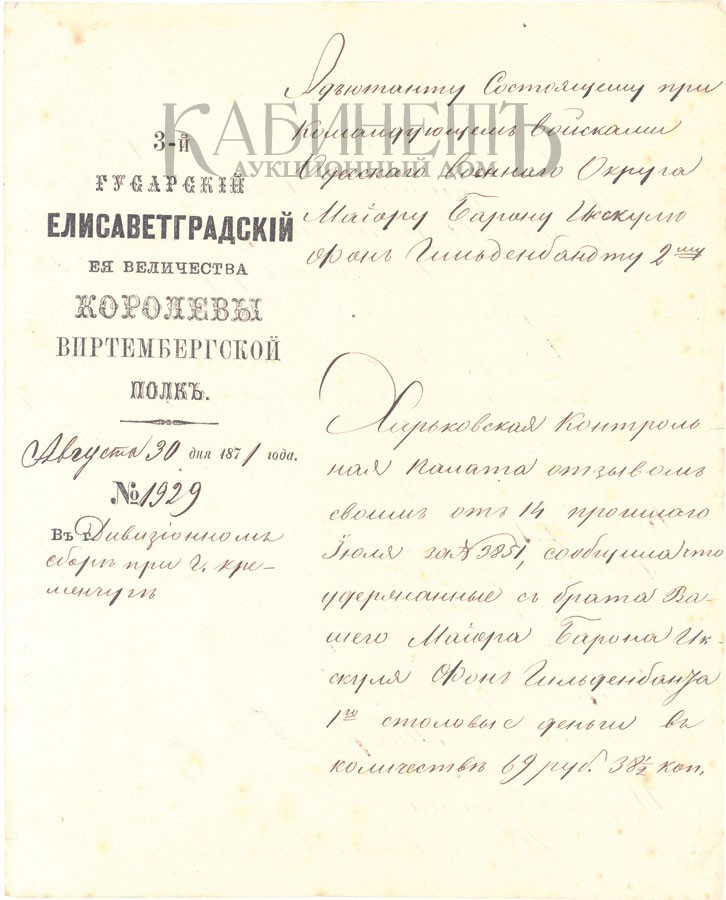 КАБИНЕТЪ
АУКЦИОННЫЙ ДОМ
3-й
ГУСАРСКІЙ
ЕЛИСАВЕТГРАДСКІЙ
ЕЯ ВЕЛИЧЕСТВА
КОРОЛЕВЫ
ВИРТЕМБЕРГСКОЙ
ПОЛКЪ.
Августа 30 дня 1871 года.
№ 1929
Въ г. Дивизіонномъ
сборѣ при г. Кре-
менчугѣ
Адъютанту Состоящему при
командующемъ войсками
Одесскаго военнаго Округа
Маіору Барону Икскулю
фонъ Гильденбандту 2му
Харьковская Контроль-
ная палата отзывомъ
своимъ отъ 14 прошлаго
Іюля за № 3851, сообщила что
удержанные съ брата Ва-
шего Маіора Барона Ик-
скуля Фонъ Гильденбандта
1го столовые деньги въ
количествѣ 69 руб. 38½ коп.